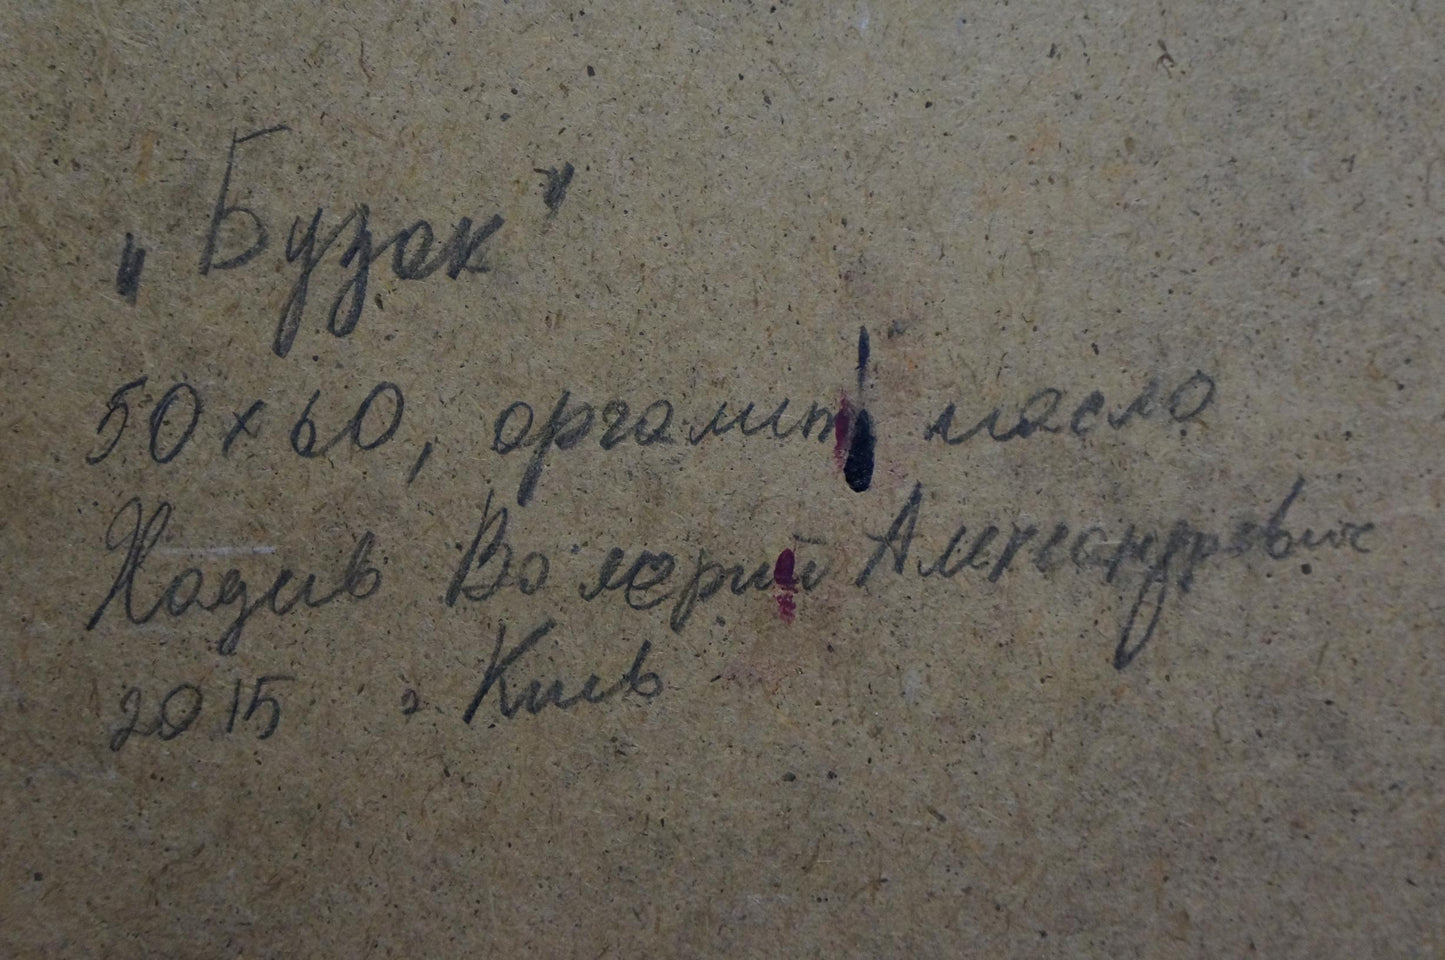 „Бузок"
50х60, оргаліт, масло
Ходив Валерий Александрович
2015 г. Киев